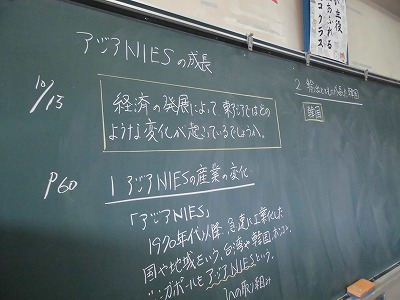 アジアNIESの成長
10/13
経済の発展によって 東アジアではどの
ような変化が起こっているでしょうか。
P60
1 アジアNIESの産業の変化
「アジアNIES」
1970年代以降、急速に工業化した
国や地域をいう。台湾や韓国、ホンコン、
シンガポールをアジアNIESという。
の取り組み
2 輸出とともに成長した韓国
韓国
あふれる
クラス